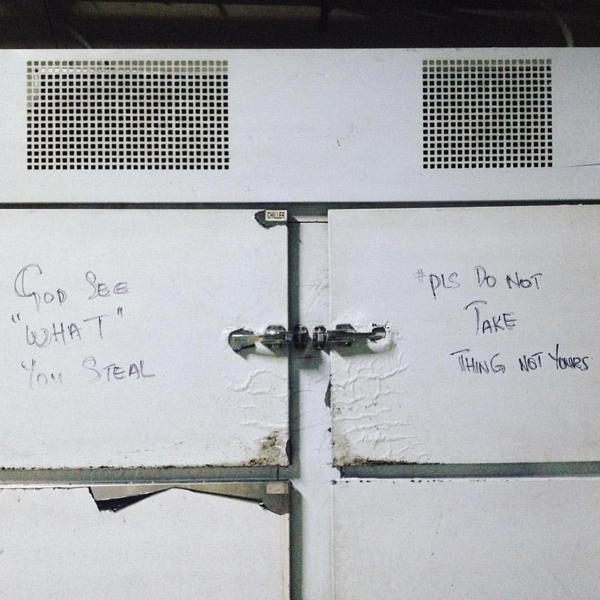 CHILLER
GOD SEE
"WHAT"
YOU STEAL
#PLS DO NOT
TAKE
THING NOT YOURS